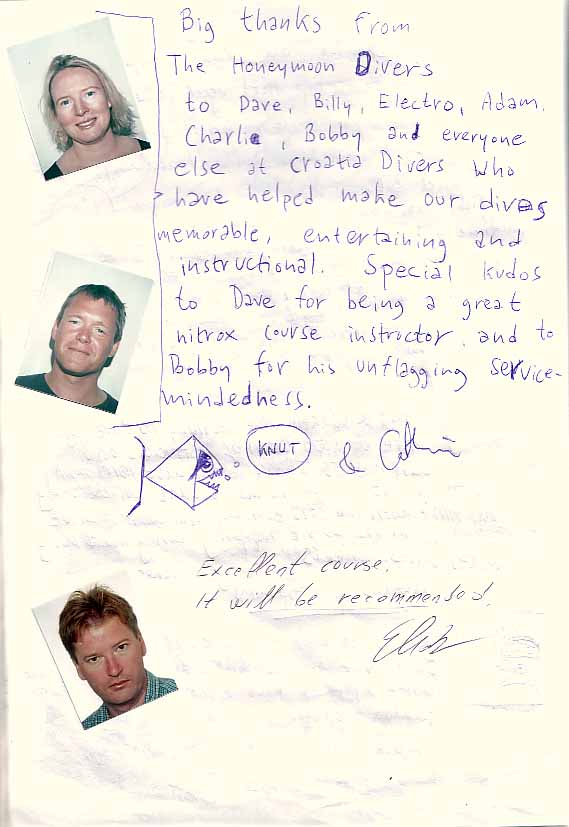 Big thanks from
The Honeymoon Divers
to Dave, Billy, Electro, Adam,
Charlie, Bobby and everyone
else at Croatia Divers who
have helped make our dives
memorable, entertaining and
instructional. Special kudos
to Dave for being a great
nitrox course instructor and to
Bobby for his unflagging service-
mindedness.
KNUT &
Excellent course.
It will be recommended.